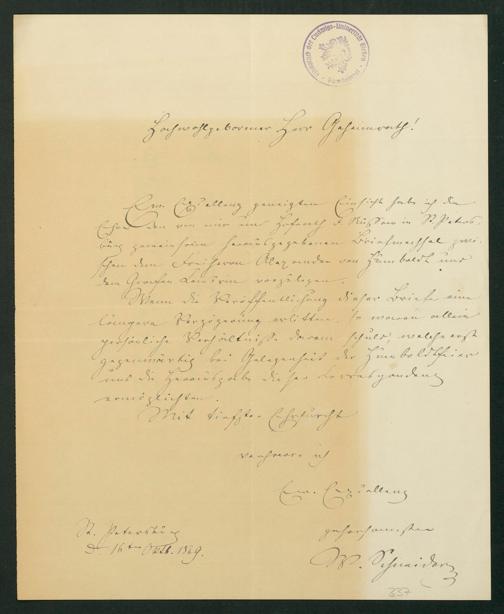 Hochwohlgeborner Herr Geheimrath!
Ew. Excellenz geneigten Einsicht habe ich die
Ehre den von mir und Hofrath Russow in St Peters-
burg gemeinsam herausgegebenen Briefwechsel zwi-
schen dem Freiherrn Alexander von Humboldt und
dem Grafen Cancrin vorzulegen.
Wenn die Veröffentlichung dieser Briefe eine
längere Verzögerung erlitten, so waren allein
persönliche Verhältnisse daran schuld, welche erst
gegenwärtig bei Gelegenheit der Humboldtfeier
uns die Herausgabe dieser Correspondenz
ermöglichten.
Mit tiefster Ehrfurcht
verharre ich
Ew. Excellenz
gehorsamster
W. Schneider
St. Petersburg
d 16ten 1869.
337